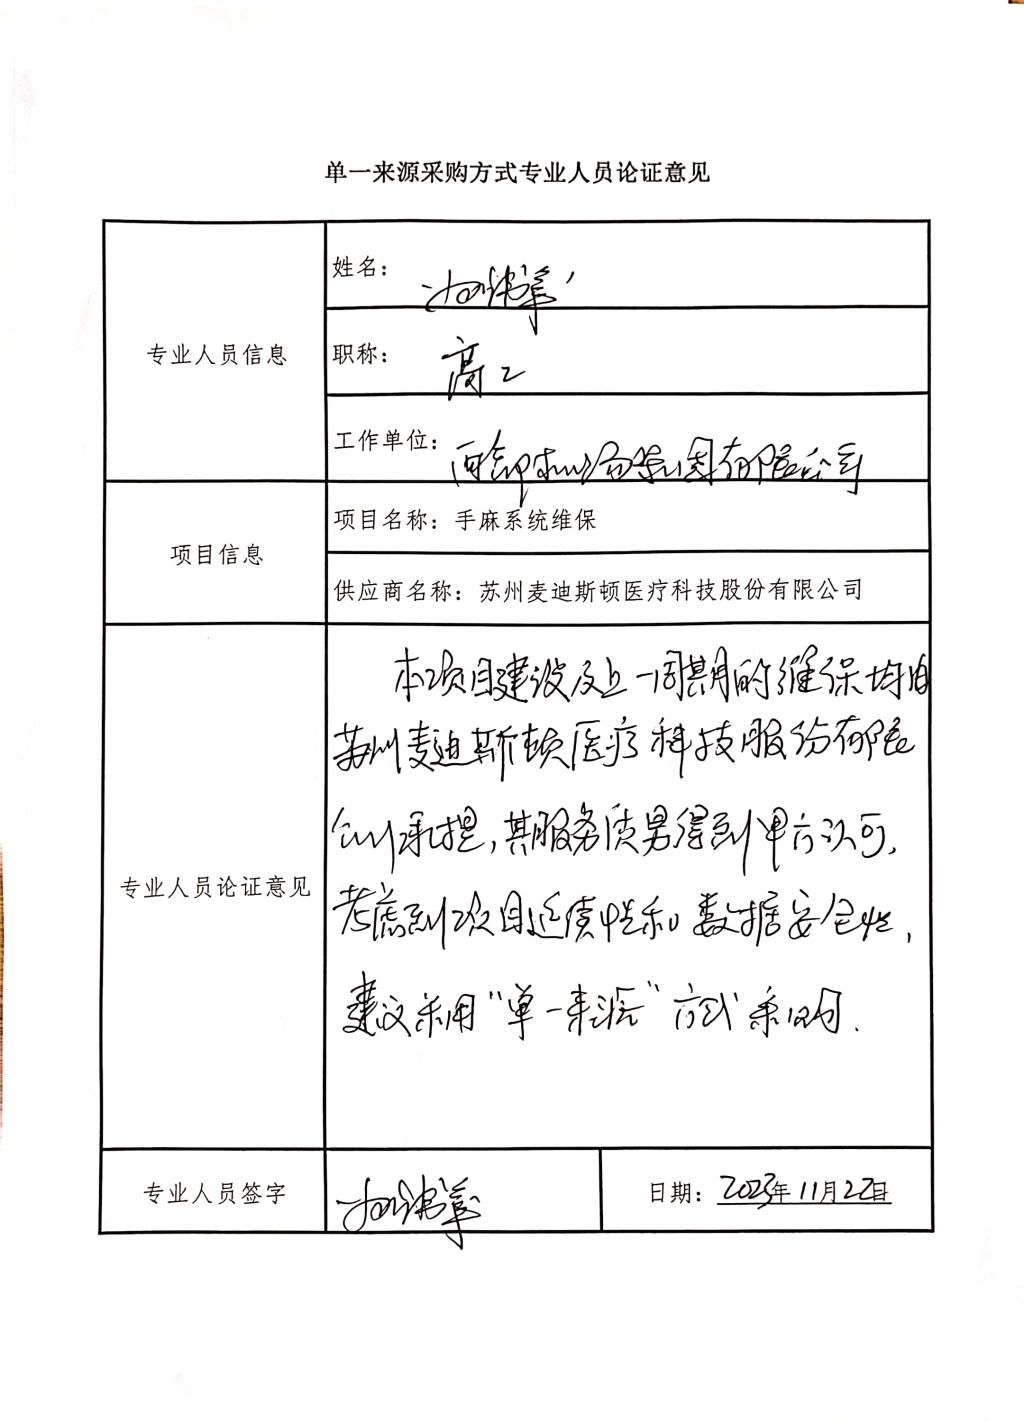 单一来源采购方式专业人员论证意见
专业人员信息
姓名：
职称：
高工
工作单位：
西部机场集团有限公司
项目信息
项目名称：手麻系统维保
供应商名称：苏州麦迪斯顿医疗科技股份有限公司
专业人员论证意见
本项目建设及上一周期的维保均由
苏州麦迪斯顿医疗科技股份有限
公司承担，其服务质量得到甲方认可，
考虑到项目延续性和数据安全性，
建议采用“单一来源”方式采购.
专业人员签字
日期：2023年11月22日